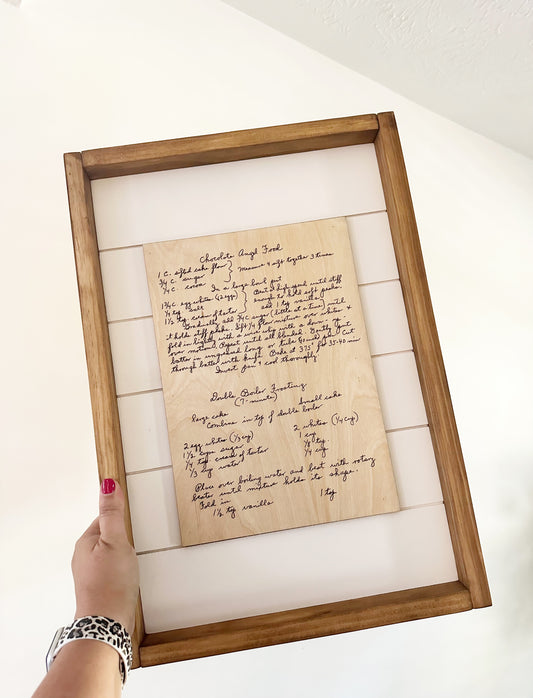 Chocolate Angel Food
1 C. sifted cake flour
3/4 C. sugar } Measure & sift together 3 times
1/4 C. cocoa
In a large bowl put
1 3/4 C. egg whites (12 eggs) } Beat at high speed until stiff
1/4 tsp. salt enough to hold soft peaks
1 1/2 tsp. cream of tartar add 1 tsp vanilla
Gradually add 3/4 C sugar (little at a time) until
it holds stiff peaks. Sift 1/4 flour mixture over whites &
fold in lightly with a wire whip with a down
over motion. Repeat until all blended. Gently Pour
batter in ungreased long or tube pan. Cut
through batter with knife. Bake at 375° for 35-40 min
Invert pan & cool thoroughly
Double Boiler Frosting
(7-minute)
large cake Small cake
Combine in top of double boiler
2 egg whites (1/3 cup) 2 whites (1/4 cup)
1 1/2 cups sugar 1 cup
1/4 tsp cream of tartar 1/8 tsp
1/3 cup water 1/4 cup
Place over boiling water and beat with rotary
beater until mixture holds its shape.
Fold in
1 1/2 tsp vanilla 1 tsp